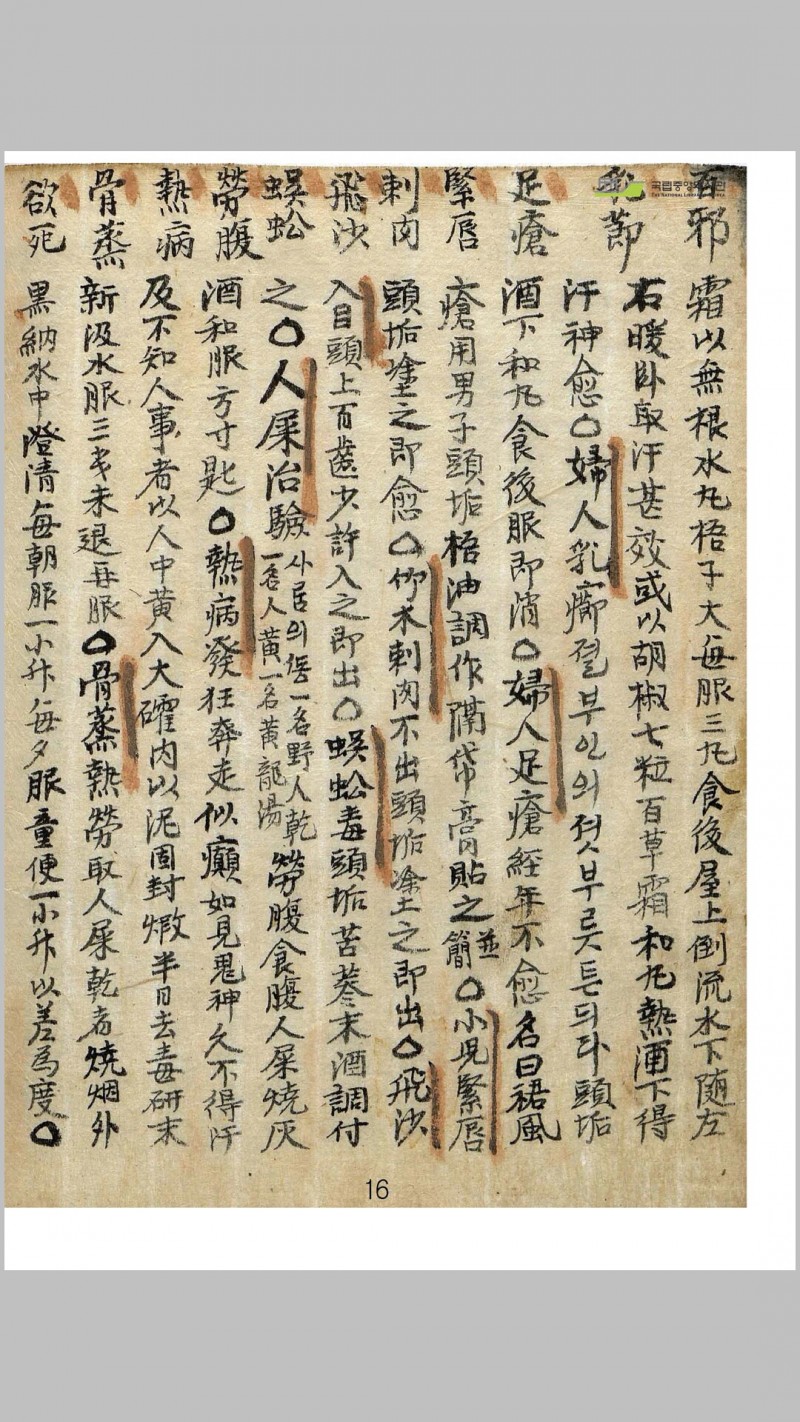 百邪
乳癤
足瘡
緊唇
刺肉
飛沙
蜈蚣
勞腹
熱病
骨蒸
欲死
霜以無根水丸梧子大每服三丸食後屋上倒流水下隨左
右暖卧取汗甚效或以胡椒七粒百草霜和丸熱酒下得
汗神愈○婦人乳癤졀부인의졋부릇튼듸라頭垢
酒下和丸食後服即消○婦人足瘡經年不愈名曰裙風
瘡用男子頭垢梧油調作隔帋膏貼之並簡○小児緊唇
頭垢塗之即愈○竹木刺肉不出頭垢塗之即出○飛沙
入目頭上百齒少許入之即出○蜈蚣毒頭垢苦蔘末酒調付
之○人屎治驗사람의一名野人乾
一名人黃一名黃龍湯勞腹食腹人屎燒灰
酒和服方寸匙○熱病發狂奔走似癲如見鬼神久不得汗
及不知人事者以人中黃入大礶內以泥固封煅半日去毒研末
新汲水服三戔未退再服○骨蒸熱勞取人屎乾者燒烟外
黑納水中澄清每朝服一小升每夕服童便一小升以差為度○
16
국립중앙도서관
THE NATIONAL LIBRARY OF KOREA